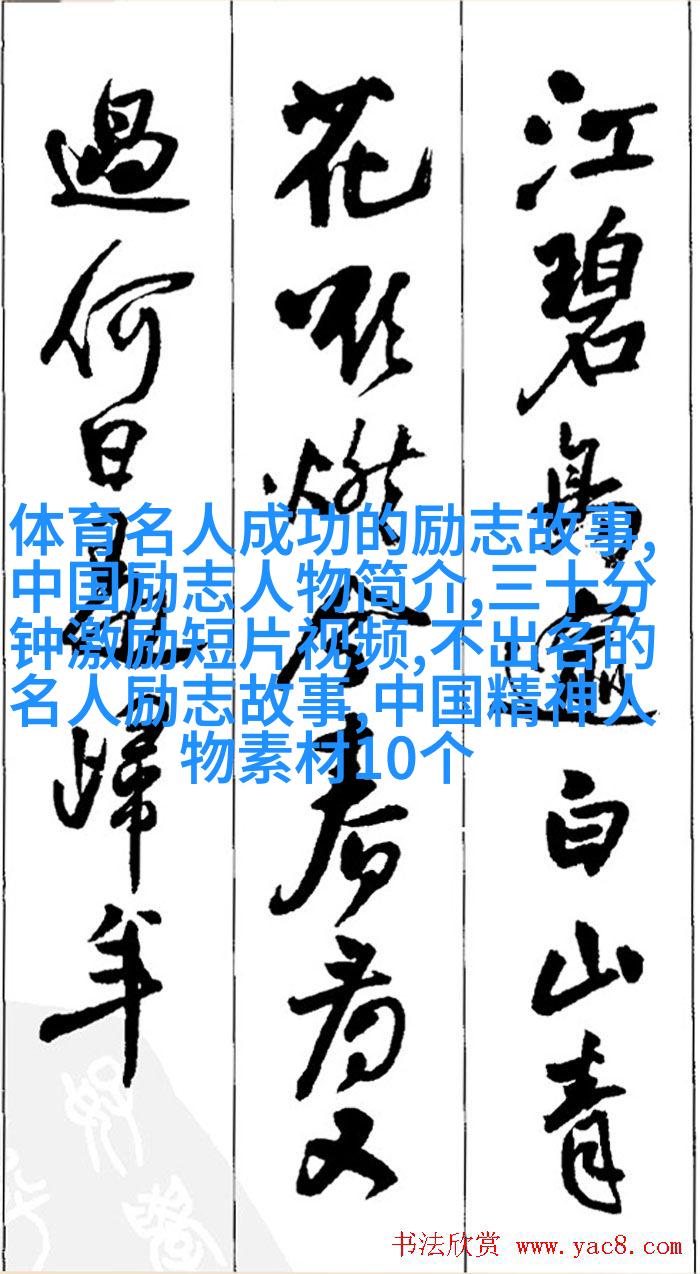 江碧鳥逾白山青
花欲燃今春看又
過何日是歸年
体育名人成功的励志故事,
中国励志人物简介,三十分
钟激励短片视频,不出名的
名人励志故事,中国精神人
物素材10个
书法欣赏 www.yac8.com